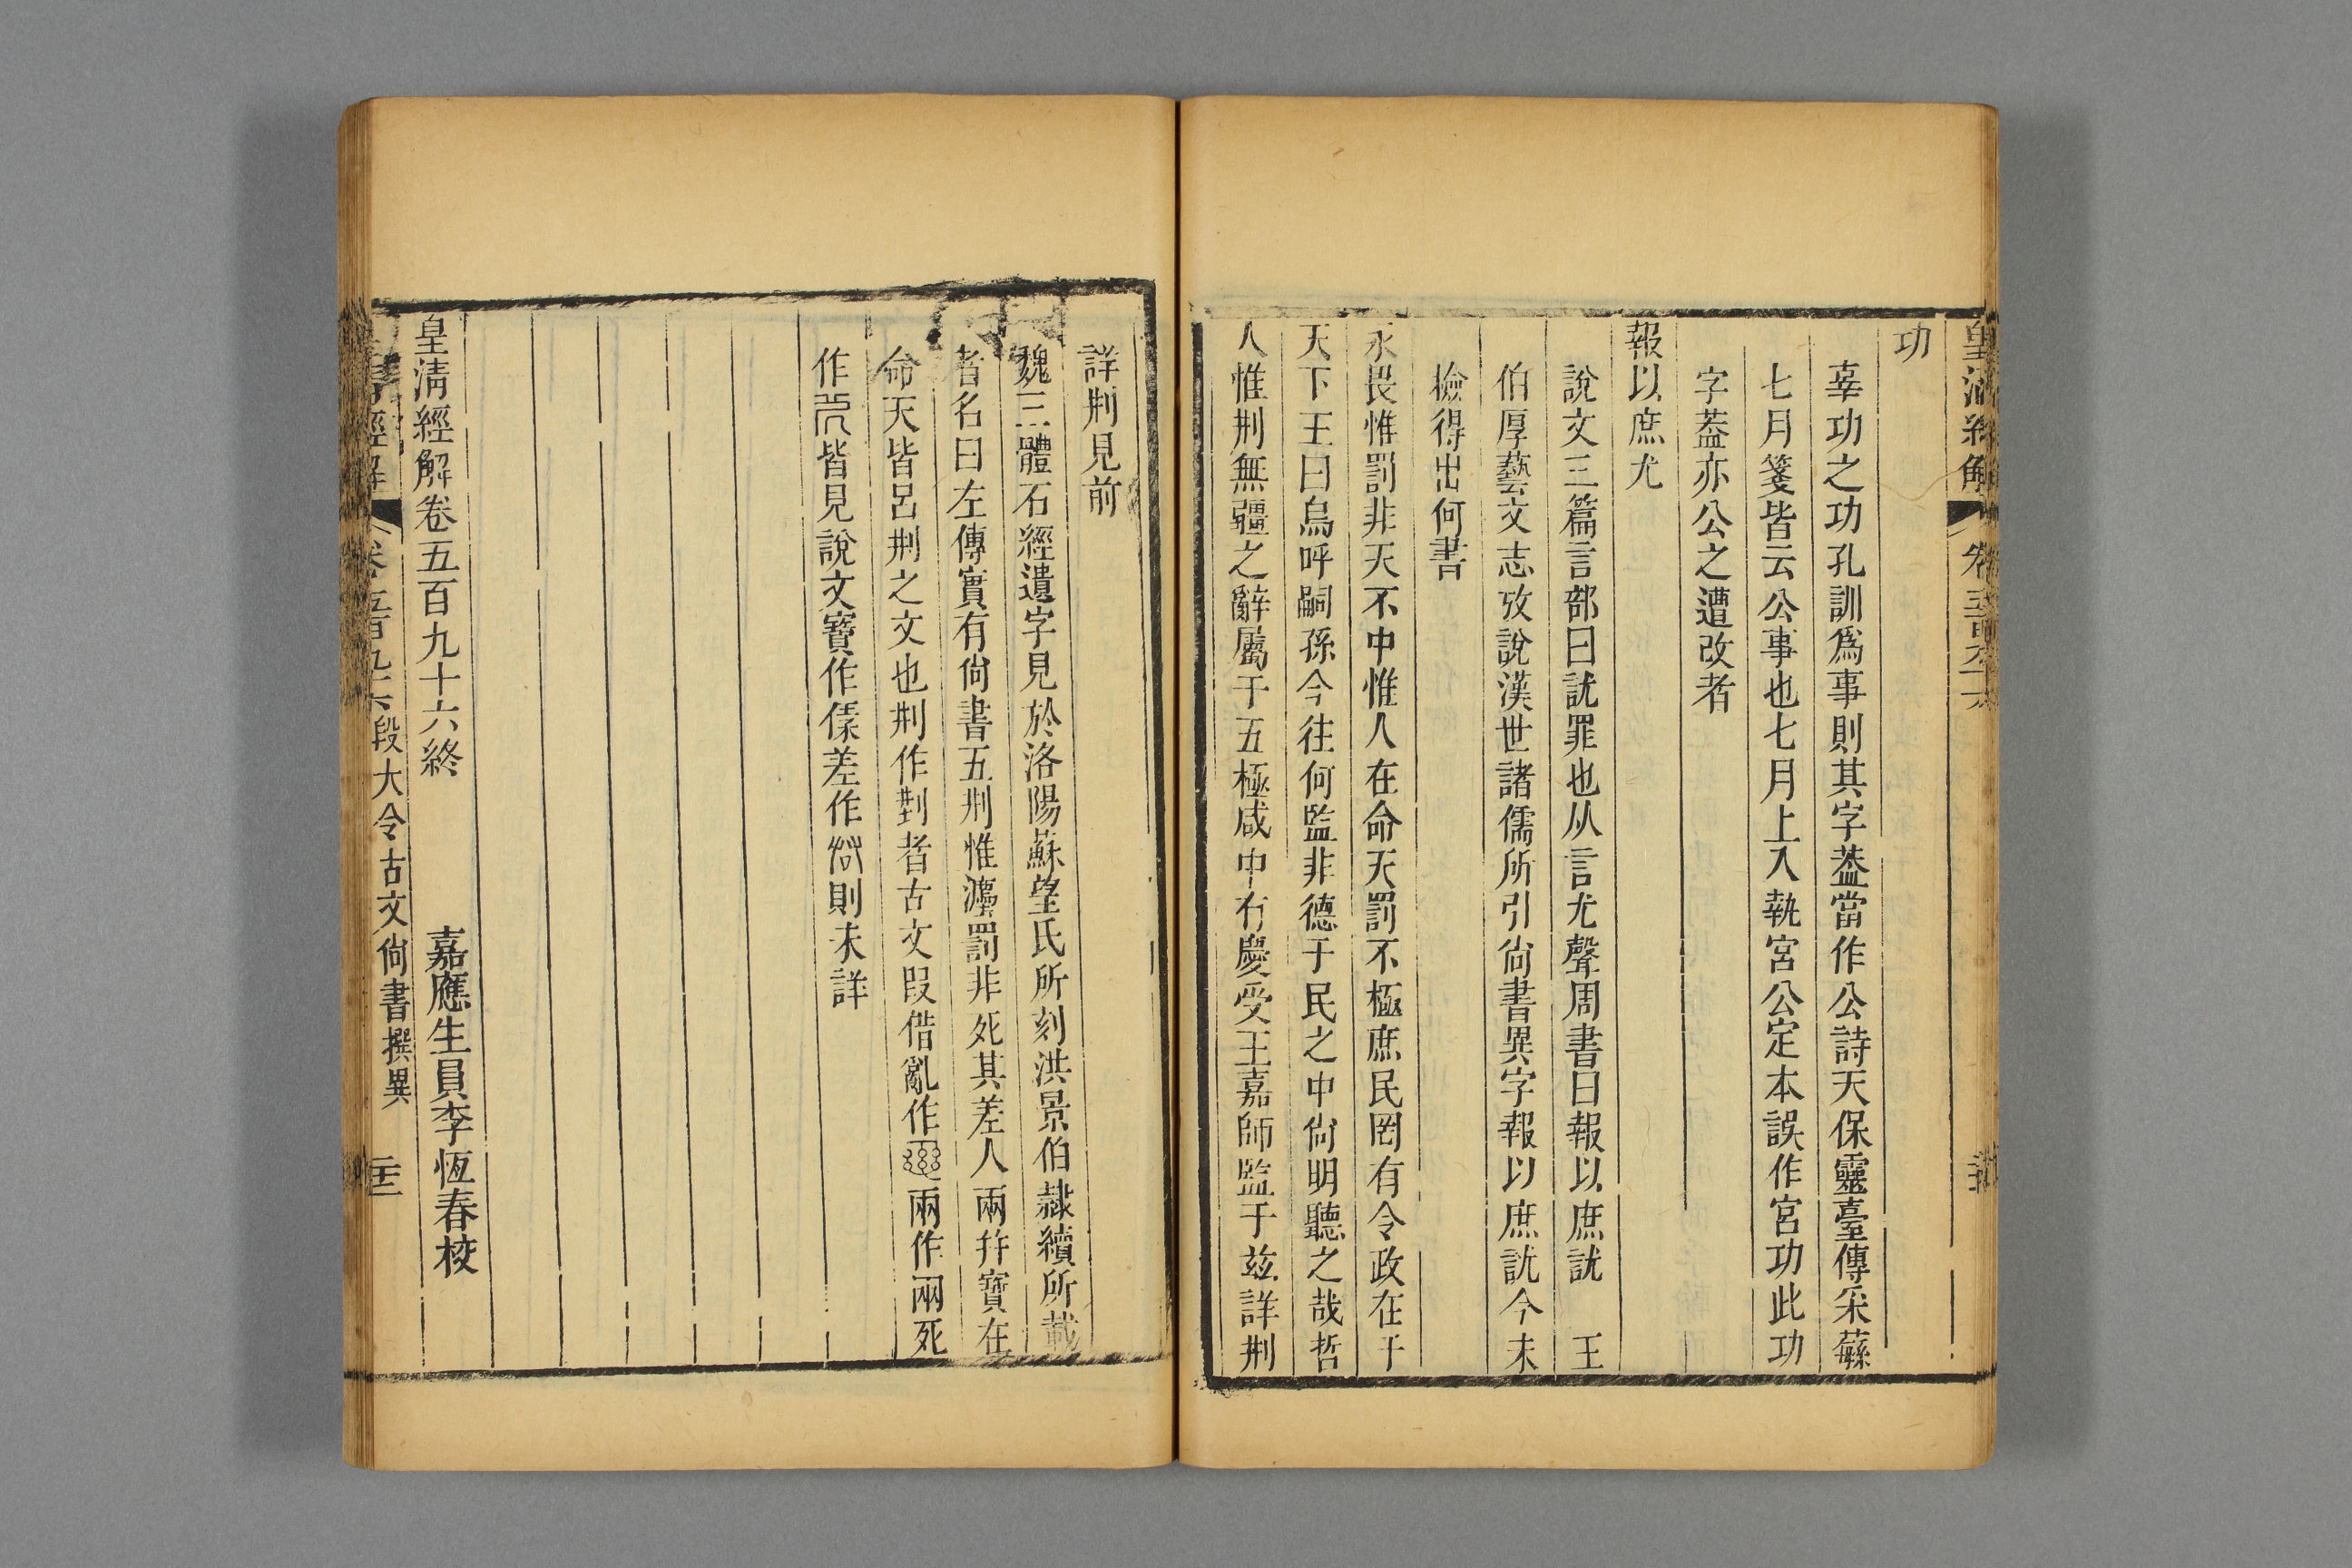 皇清經解
卷五百九十六
功
辜功之功孔訓爲事則其字葢當作公詩天保靈臺傳采蘩
七月箋皆云公事也七月上入執宮公定本誤作宮功此功
字葢亦公之遭改者
報以庶尤
說文三篇言部曰訧罪也从言尤聲周書曰報以庶訧　王
伯厚藝文志攷說漢世諸儒所引尙書異字報以庶訧今未
檢得出何書
永畏惟罰非天不中惟人在命天罰不極庶民罔有令政在于
天下王曰烏呼嗣孫今往何監非德于民之中尙明聽之哉哲
人惟㓝無疆之辭屬于五極咸中有慶受王嘉師監于兹詳㓝
詳㓝見前
魏三體石經遺字見於洛陽蘇望氏所刻洪景伯隷續所載
者名曰左傳實有尙書五㓝惟灋罰非死其差人兩幷寶在
命天皆呂㓝之文也㓝作㓝者古文叚借亂作兩作㒳死
作皆見說文寶作㑱差作則未詳
皇清經解卷五百九十六終
嘉應生員李恆春校
經解
卷五百九十六
段大令古文尙書撰異